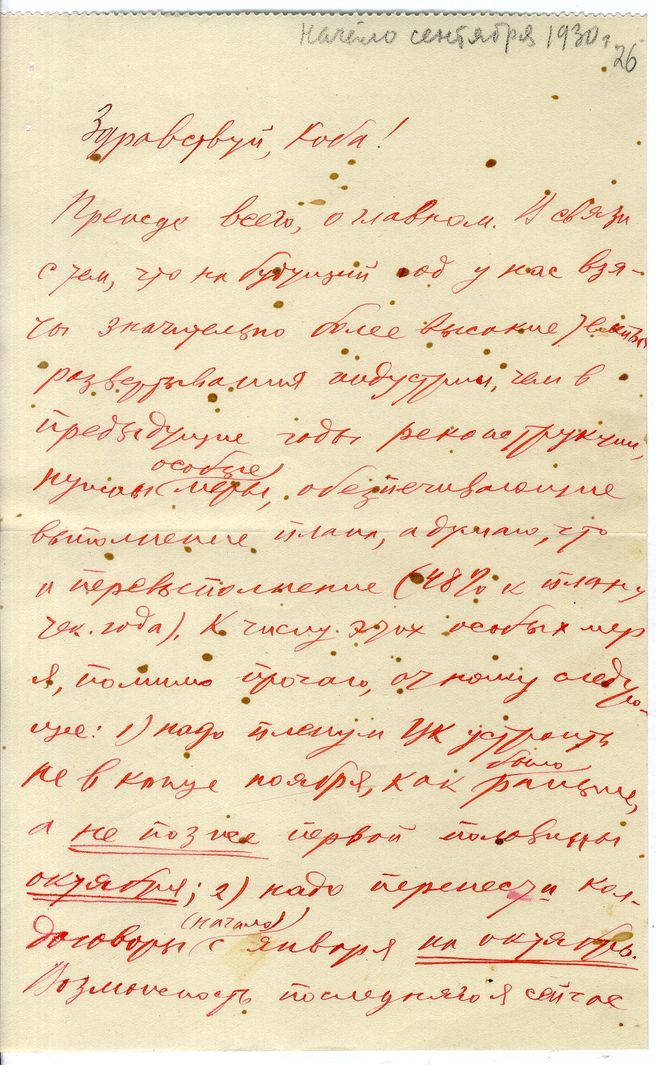 Начало сентября 1930 г.
26
Здравствуй, Коба!
Прежде всего, о главном. В связи
с тем, что на будущий год у нас взя-
ты значительно более высокие темпы
развертывания индустрии, чем в
предыдущие годы реконструкции,
нужны особые меры, обеспечивающие
выполнение плана, а думаю, что
и перевыполнение (48% к плану
тек. года). К числу этих особых мер
я, помимо прочего, отношу следую-
щее: 1) надо пленум ЦК устроить
не в конце ноября, как было раньше,
а не позже первой половины
октября; 2) надо перенести кол-
договоры (начало) с января на октябрь.
Возможность последнего я сейчас